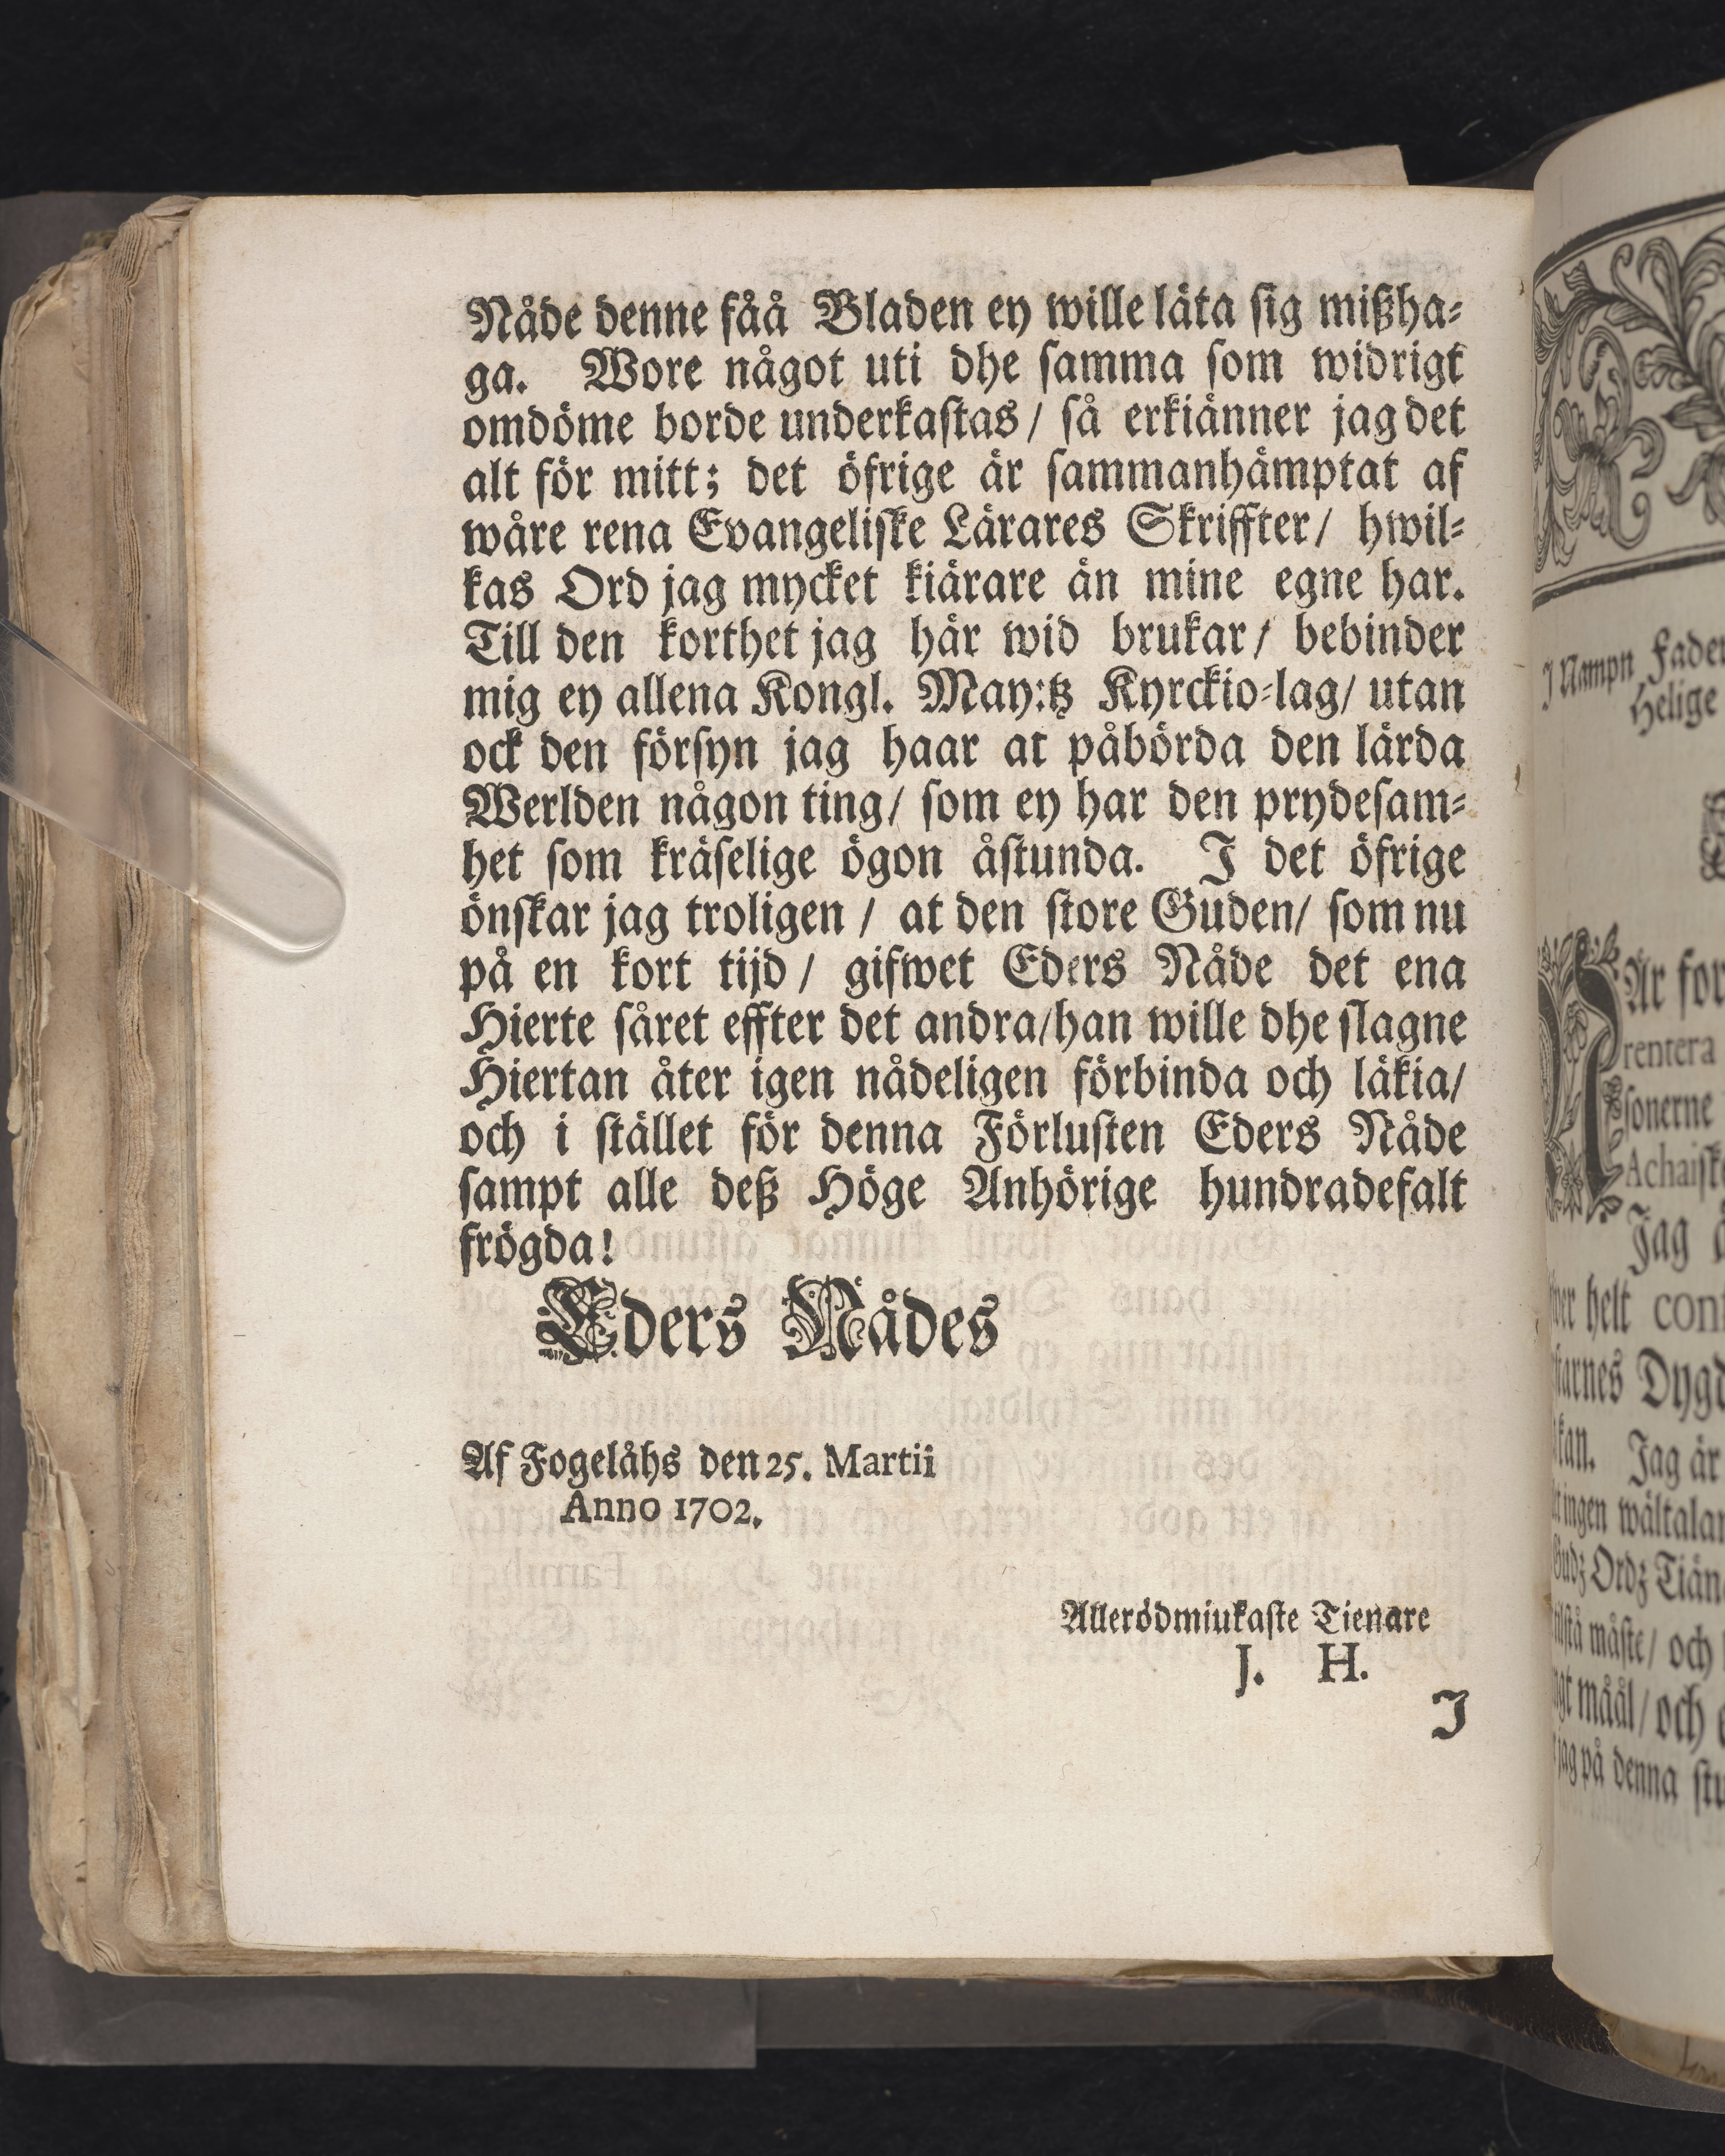 Nåde denne fåå Bladen ey wille låta sig mißha-
ga. Wore något uti dhe samma som widrigt
omdöme borde underkastas / så erkiänner jag det
alt för mitt; det öfrige är sammanhämptat af
wåre rena Evangeliske Lärares Skriffter / hwil-
kas Ord jag mycket kiärare än mine egne har.
Till den korthet jag här wid brukar / bebinder
mig ey allena Kongl. May:tz Kyrckio-lag / utan
ock den försyn jag haar at påbörda den lärda
Werlden någon ting / som ey har den prydesam-
het som kräselige ögon åstunda. I det öfrige
önskar jag troligen / at den store Guden / som nu
på en kort tijd / gifwet Eders Nåde det ena
Hierte såret effter det andra / han wille dhe slagne
Hiertan åter igen nådeligen förbinda och läkia /
och i stället för denna Förlusten Eders Nåde
sampt alle deß Höge Anhörige hundradefalt
frögda!
Eders Nådes
Af Fogelåhs den 25. Martii
Anno 1702.
Allerödmiukaste Tienare
J. H.
I
I Nampn Fader
Helige
Är for
rentera
sonerne
Achaisk
Jag
helt con
Dygd
kan. Jag är
ingen wältalan
Gudz Ordz Tiän
måste / och
måål / och
jag på denna stu